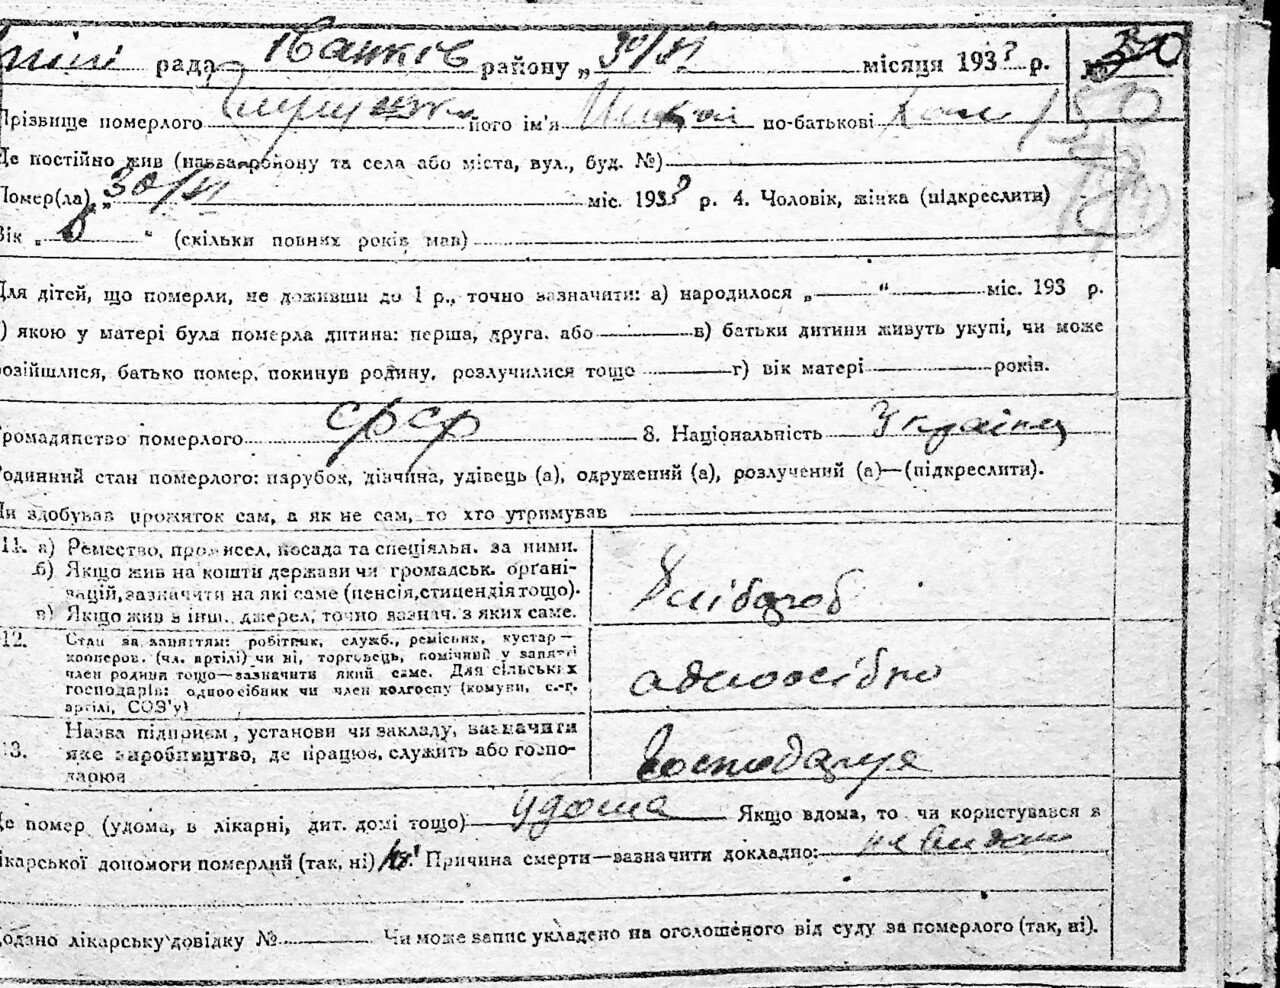 рада Іванків району „30/VI місяця 1933 р.
Прізвище померлого його ім'я по-батькові
Де постійно жив (назва району та села або міста, вул., буд. №)
Помер(ла) „30/VI міс. 1933 р. 4. Чоловік, жінка (підкреслити)
Вік „ “ (скільки повних років мав)
Для дітей, що померли, не доживши до 1 р., точно зазначити: а) народилося „ “ міс. 193 р.
) якою у матері була померла дитина: перша, друга, або в) батьки дитини живуть укупі, чи може
розійшлися, батько помер, покинув родину, розлучилися тощо г) вік матері років.
Громадянство померлого СРСР 8. Національність Українец
Родинний стан померлого: парубок, дівчина, удівець (а), одружений (а), розлучений (а)—(підкреслити).
Чи здобував прожиток сам, а як не сам, то хто утримував
11. а) Ремество, промисел, посада та спеціяльн. за ними.
б) Якщо жив на кошти держави чи громадськ. орґані-
зацій, зазначити на які саме (пенсія, стипендія тощо).
в) Якщо жив з інш. джерел, точно зазнач. з яких саме.
Хлібороб
12. Стан за заняттям: робітник, служб., ремісник, кустар—
кооперов. (чл. артілі) чи ні, торговець, помічний у занятті
член родини тощо—зазначити який саме. Для сільських
господарів: одноосібник чи член колгоспу (комуни, с.-г.
артілі, СОЗ'у)
адноосібно
13. Назва підприєм., установи чи закладу, зазначити
яке виробництво, де працює, служить або госпо-
дарює
господарує
Де помер (удома, в лікарні, дит. домі тощо) удома Якщо вдома, то чи користувався з
лікарської допомоги померлий (так, ні) ні Причина смерти—зазначити докладно:
Додано лікарську довідку № Чи може запис укладено на оголошеного від суду за померлого (так, ні).